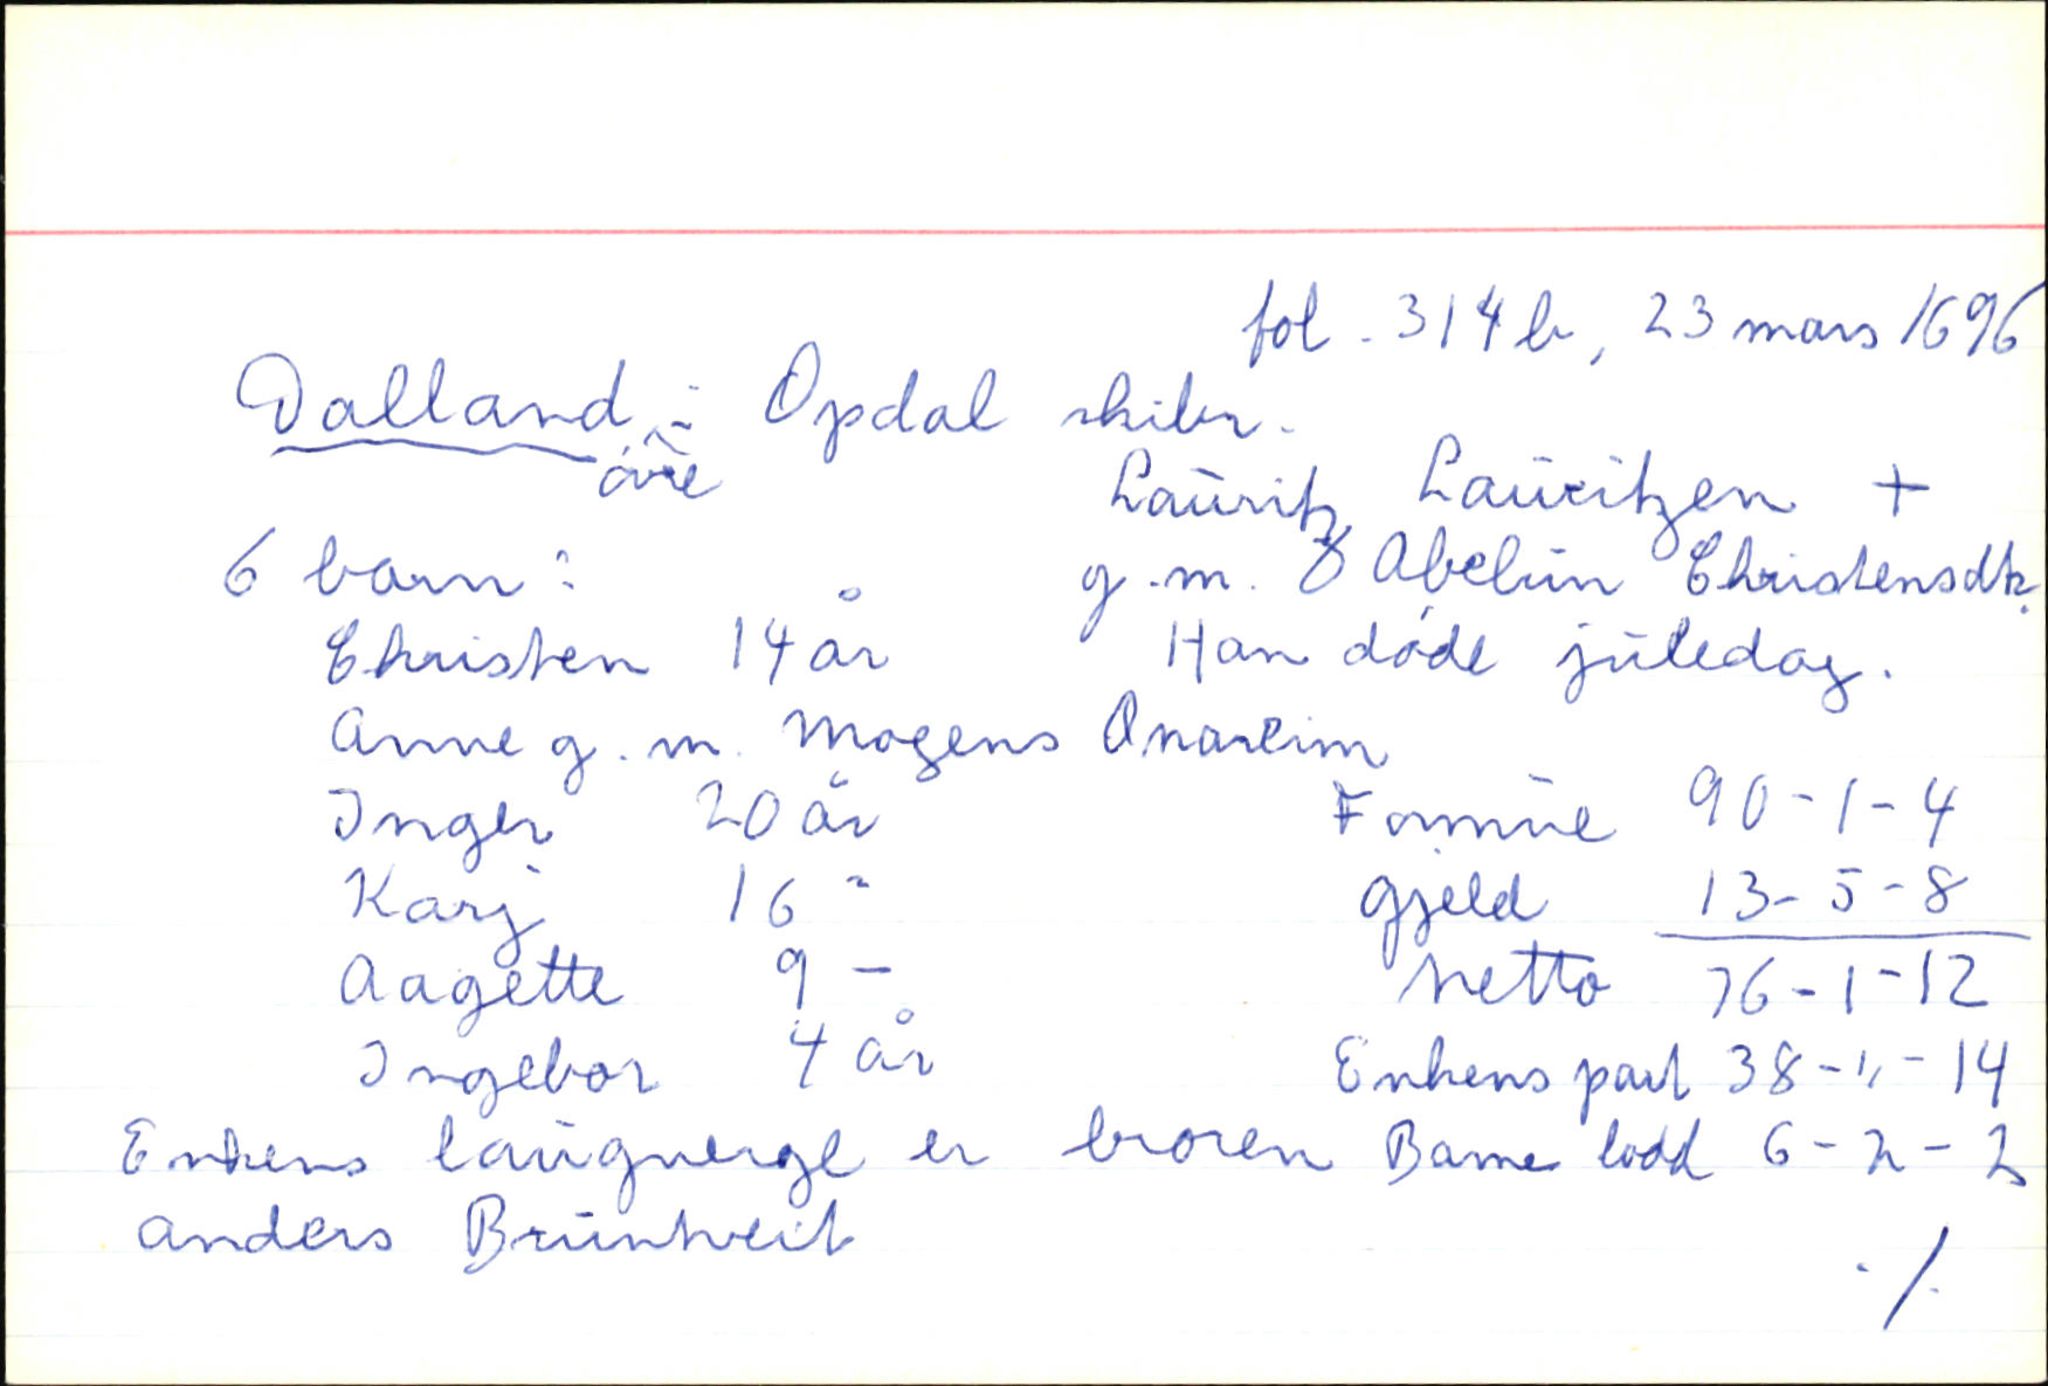 fol. 314 b, 23 mars 1696
Dalland i Opdal skibr.
øvre
Lauritz Lauritzen +
6 barn:
g.m. Abelun Christensdtr.
Christen 14 år
Han døde juledag.
Anne g.m. Mogens Qvareim
Inger 20 år
Formue 90-1-4
Karj 16 "
Gjeld 13-5-8
Aagette 9 —
Netto 76-1-12
Ingebor 4 år
Enkens part 38-"-14
Enkens laugverge er broren
Barne lodd 6-2-2
Anders Bruntveit
./.